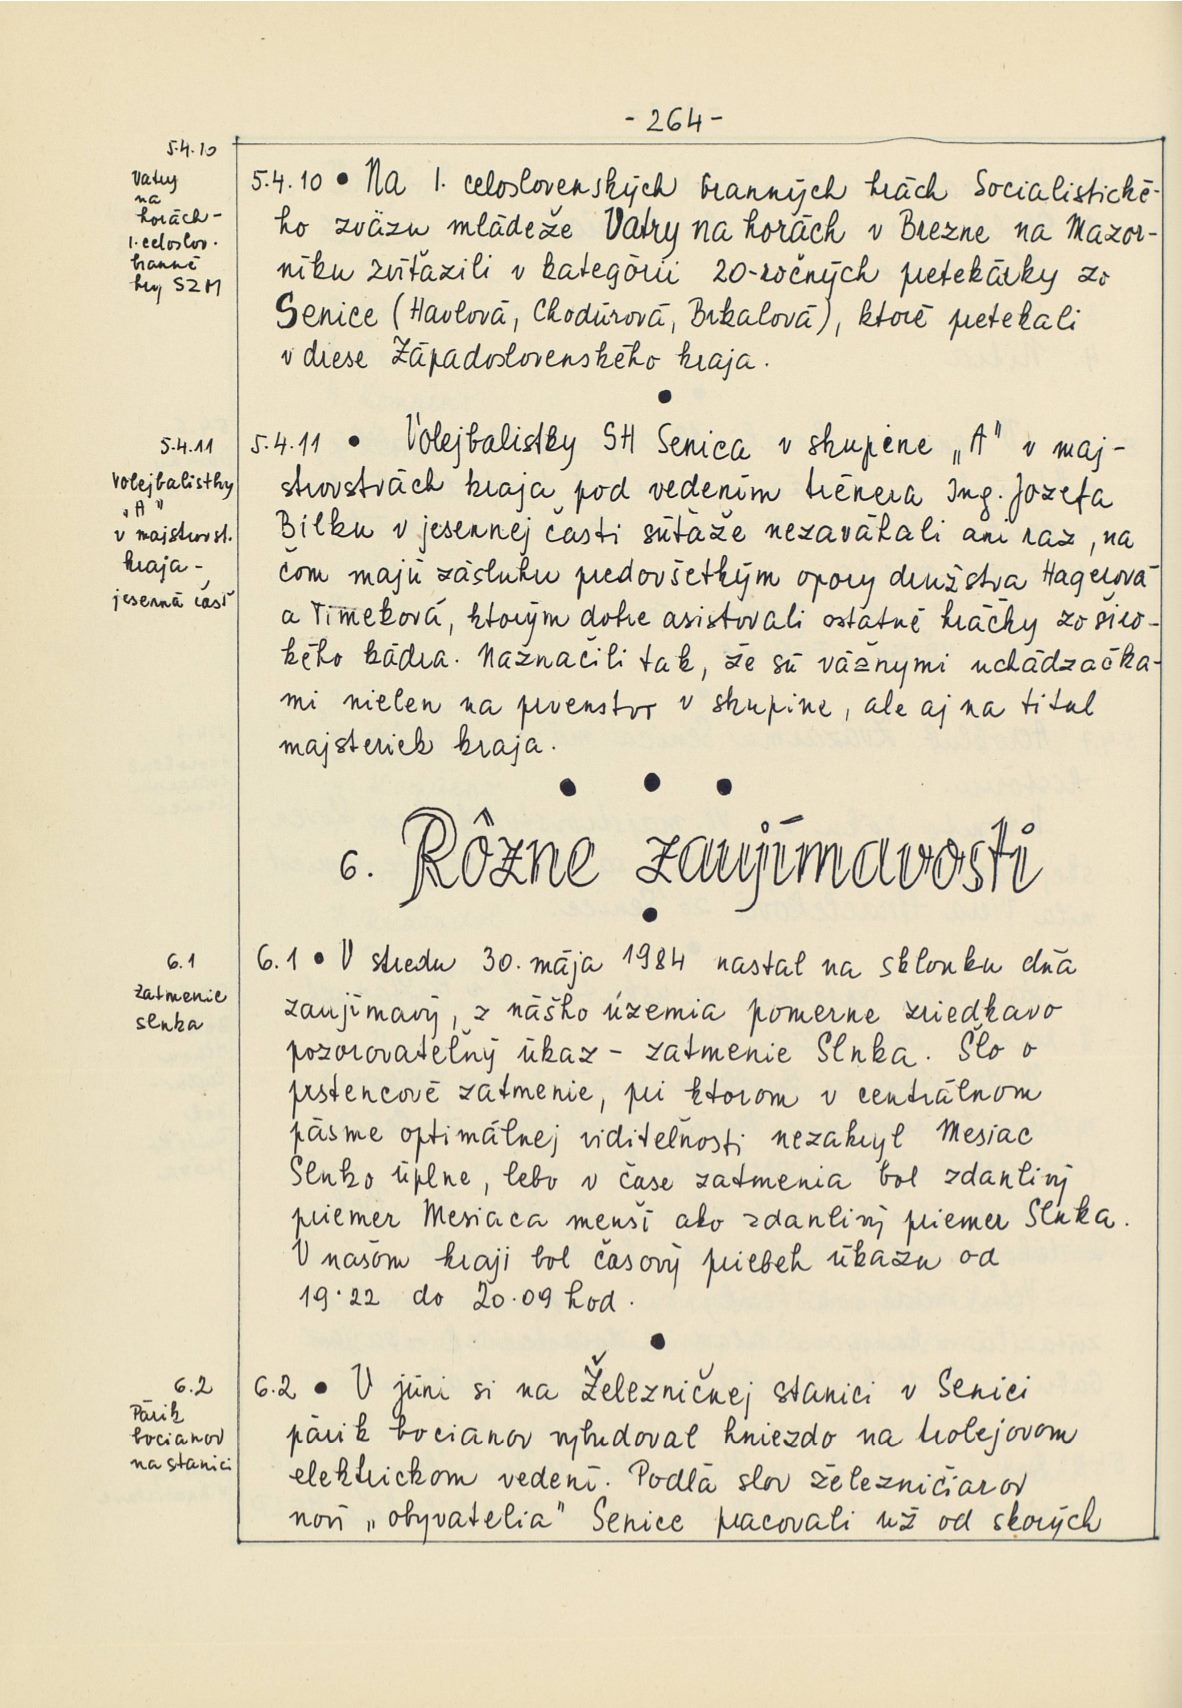 - 264 -
5.4.10
Vatry
na
horách -
1. celoslov.
branné
hry SZM
5.4.10 • Na 1. celoslovenských branných hrách Socialistické-
ho zväzu mládeže Vatry na horách v Brezne na Mazor-
níku zvíťazili v kategórii 20-ročných pretekárky zo
Senice (Havlová, Chodúrová, Brkalová), ktoré pretekali
v drese Západoslovenského kraja.
5.4.11
Volejbalistky
"A"
v majstrovst.
kraja -
jesenná časť
5.4.11 • Volejbalistky SH Senica v skupine „A" v maj-
strovstvách kraja pod vedením trénera Ing. Jozefa
Bílku v jesennej časti súťaže nezaváhali ani raz, na
čom majú zásluhu predovšetkým opory družstva Hagerová
a Timeková, ktorým dobre asistovali ostatné hráčky zo širo-
kého kádra. Naznačili tak, že sú vážnymi uchádzačka-
mi nielen na prvenstvo v skupine, ale aj na titul
majsteriek kraja.
• • •
6. Rôzne zaujímavosti
6.1
Zatmenie
slnka
6.1 • V stredu 30. mája 1984 nastal na sklonku dňa
zaujímavý, z nášho územia pomerne zriedkavo
pozorovateľný úkaz - zatmenie Slnka. Šlo o
prstencové zatmenie, pri ktorom v centrálnom
pásme optimálnej viditeľnosti nezakryl Mesiac
Slnko úplne, lebo v čase zatmenia bol zdanlivý
priemer Mesiaca menší ako zdanlivý priemer Slnka.
V našom kraji bol časový priebeh úkazu od
19.22 do 20.09 hod.
6.2
Párik
bocianov
na stanici
6.2 • V júni si na Železničnej stanici v Senici
párik bocianov vybudoval hniezdo na trolejovom
elektrickom vedení. Podľa slov železničiarov
noví „obyvatelia" Senice pracovali už od skorých